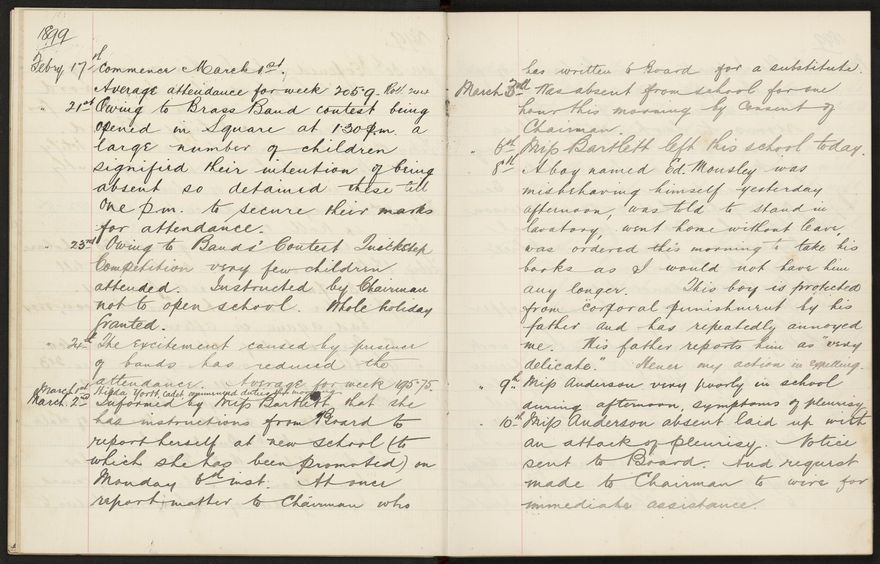 1899
Febry 17th Commence March 1st.
Average attendance for week 205.9. Roll
" 21st Owing to Brass Band contest being
opened in Square at 1.30 p.m. a
large number of children
signified their intention of being
absent so detained these till
One p.m. to secure their marks
for attendance.
" 23rd Owing to Bands' Contest Quickstep
Competition very few children
attended. Instructed by Chairman
not to open school. Whole holiday
Granted.
24th The excitement caused by presence
of bands has reduced the
attendance. Average for week 195.75.
March 1st Yortt, cadet commenced duties this morning
March 2nd Informed by Miss Bartlett that she
has instructions from Board to
report herself at new school (to
which she has been promoted) on
Monday 6th inst. At once
report matter to Chairman who
has written to Board for a substitute.
March 3rd Was absent from school for one
hour this morning by consent of
Chairman.
" 6th Miss Bartlett left this school today.
8th A boy named Ed. Mousley was
misbehaving himself yesterday
afternoon, was told to stand in
lavatory, went home without leave,
was ordered this morning to take his
books as I would not have him
any longer. This boy is protected
from corporal punishment by his
father and has repeatedly annoyed
me. His father reports him as "very
delicate." Hence my action in expelling.
" 9th Miss Anderson very poorly in school
during afternoon, symptoms of pleurisy
" 10th Miss Anderson absent laid up with
an attack of pleurisy. Notice
sent to Board. And request
made to Chairman to wire for
immediate assistance.